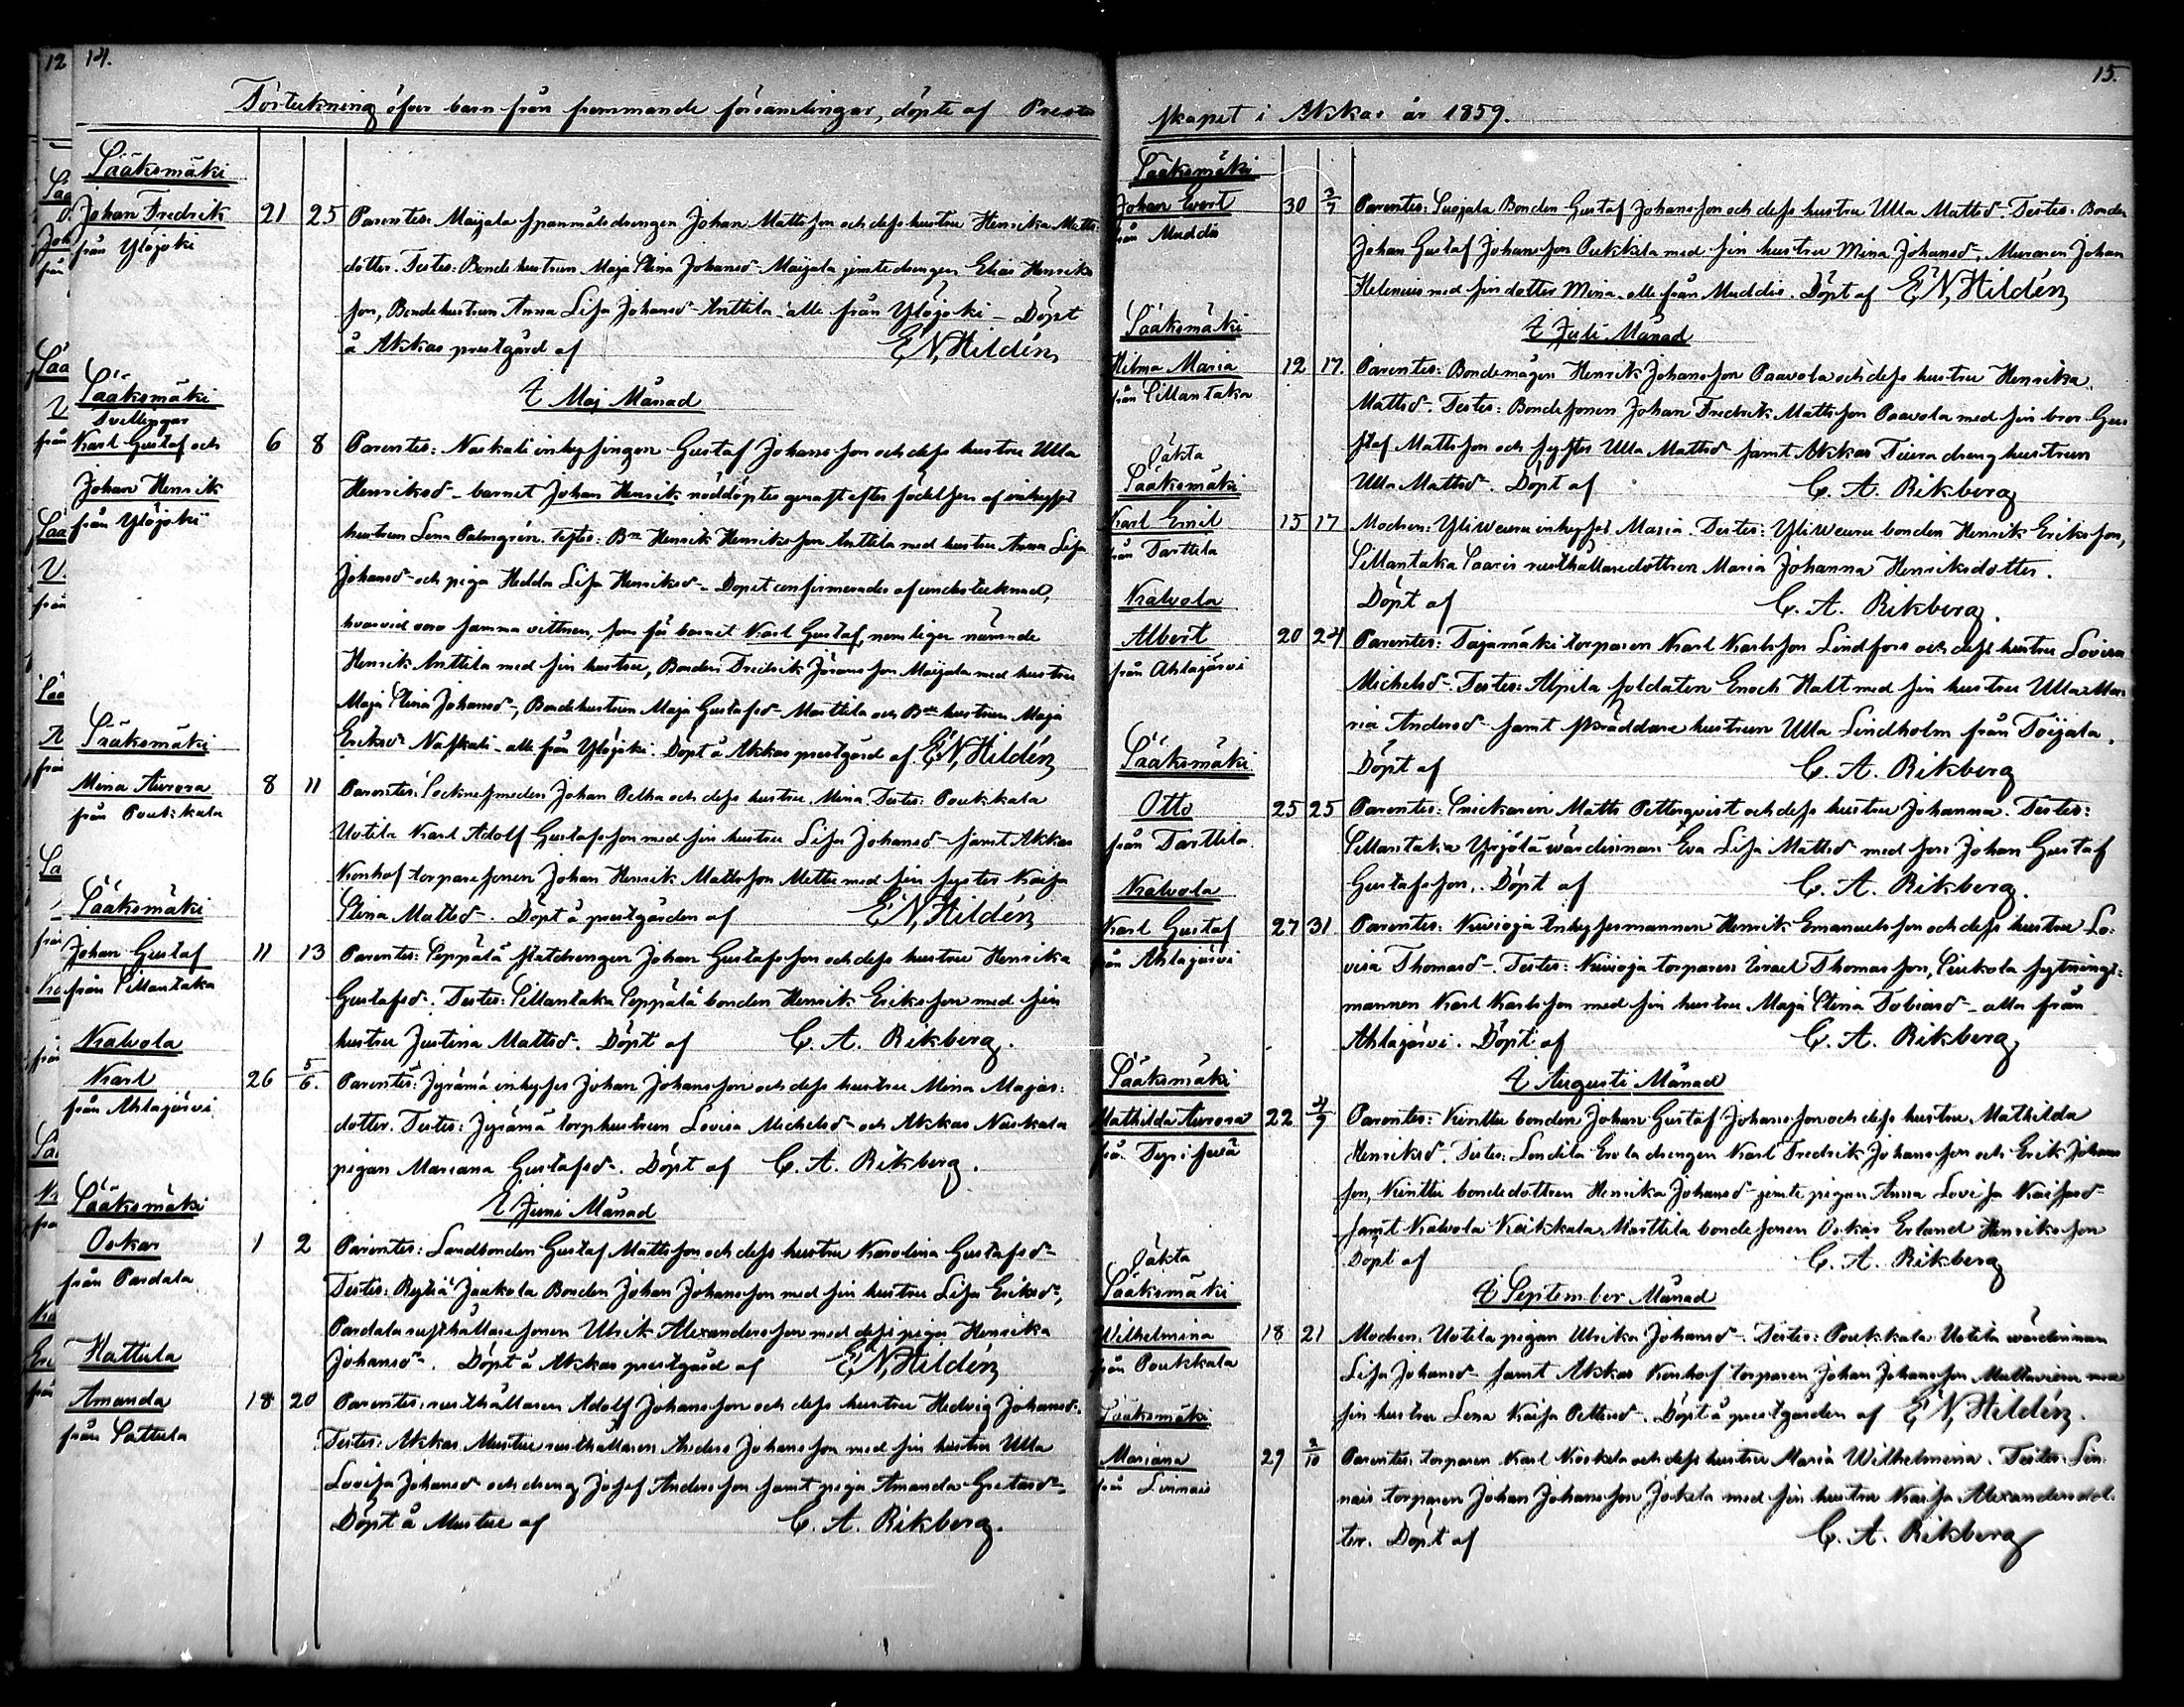 12 14.
Förteckning öfver barn från främmande församlingar, döpte af Prester
Sääksmäki
Johan Fredrik 21 25 Parentes: Maijala spanmålsdrengen Johan Mattsson och dess hustru Henrika Matts-
från Ylöjoki dotter. Testes: Bondehustrun Maja Stina Johansdr Maijala jemte drengen Elias Henriks
son, Bondehustrun Anna Lisa Johansdr Anttila - alle från Ylöjoki - Döpt
å Akkas prestgård af E N Hildén
I Maj Månad
Sääksmäki
Tvillingar
Karl Gustaf och 6 8 Parentes: Naskali inhysingen Gustaf Johansson och dess hustru Ulla
Johan Henrik Henriksdr - barnet Johan Henrik nöddöptes genast efter födelsen af inhyses
från Ylöjoki hustrun Lena Palmgrén. Testes: Bn Henrik Henriksson Anttila med hustru Anna Lisa
Johansdr och piga Hedda Lisa Henriksdr - Dopet confirmerades af undertecknad,
hvarvid voro samma vittnen, som för barnet Karl Gustaf, nemligen nämnde
Henrik Anttila med sin hustru, Bonden Fredrik Göransson Maijala med hustru
Maja Stina Johansdr, Bondehustrun Maja Gustafsdr Marttila och Bde hustrun Maja
Eriksdr Naskali - alle från Ylöjoki. Döpt å Akkas prestgård af E N Hildén
Sääksmäki
Mina Aurora 8 11 Parentes: Socknesmeden Johan Pelha och dess hustru Mina. Testes: Poukkala
från Poukkala Uotila Karl Adolf Gustafsson med sin hustru Lisa Johansdr samt Akkas
Konhof torparesonen Johan Henrik Mattsson Mettu med sin syster Kaisa
Stina Mattsdr. Döpt å prestgården af E N Hildén
Sääksmäki
Johan Gustaf 11 13 Parentes: Seppälä statdrengen Johan Gustafsson och dess hustru Henrika
från Sillantaka Gustafsdr. Testes: Sillantaka Seppälä bonden Henrik Eriksson med sin
hustru Justina Mattsdr. Döpt af C. A. Rikberg.
Kalvola
Karl 26 5/6. Parentes: Jyrämä inhyses Johan Johansson och dess hustru Mina Majas-
från Ahlajärvi dotter. Testes: Jyrämä torphustrun Lovisa Michelsdr och Akkas Naskala
pigan Mariana Gustafsdr. Döpt af C. A. Rikberg.
I Juni Månad
Sääksmäki
Oskar 1 2 Parentes: Landbonden Gustaf Mattsson och dess hustru Karolina Gustafsdr
från Pardala Testes: Rytiä Jaakola Bonden Johan Johansson med sin hustru Lisa Eriksdr,
Pardala rusthållaresonen Ulrik Alexandersson med dess piga Henrika
Johansdr. Döpt å Akkas prestgård af E N Hildén
Hattula
Amanda 18 20 Parentes: rusthållaren Adolf Johansson och dess hustru Hedvig Johansdr.
från Sattula Testes: Akkas Mustue rusthållaren Anders Johansson med sin hustru Ulla
Lovisa Johansdr och dreng Josef Andersson samt piga Amanda Gustavsdr.
Döpt å Mustue af C. A. Rikberg.
15.
skapet i Akkas år 1859.
Sääksmäki
Johan Evert 30 3/7 Parentes: Suojala Bonden Gustaf Johansson och dess hustru Ulla Mattsdr. Testes: Bonden
från Muddis Johan Gustaf Johansson Pukkila med sin hustru Mina Johansdr, Muraren Johan
Helenius med sin dotter Mina - alle från Muddis. Döpt af E N Hildén
I Juli Månad
Sääksmäki
Hilma Maria 12 17. Parentes: Bondemågen Henrik Johansson Paavola och dess hustru Henrika
från Sillantaka Mattsdr. Testes: Bondesonen Johan Fredrik Mattsson Paavola med sin bror Gus
staf Mattsson och syster Ulla Mattsdr samt Akkas Tiura drenghustrun
Ulla Mattsdr. Döpt af C. A. Rikberg
Oäkta
Sääksmäki
Karl Emil 15 17 Modren: Yliweuru inhyses Maria. Testes: Yliweuru bonden Henrik Eriksson,
från Tarttila Sillantaka Saaris rusthållaredottren Maria Johanna Henriksdotter.
Döpt af C. A. Rikberg.
Kalvola
Albert 20 24 Parentes: Tajamäki torparen Karl Karlsson Lindfors och dess hustru Lovisa
från Ahlajärvi Michelsdr. Testes: Alpila soldaten Enoch Halt med sin hustru Ulla Ma-
ria Andersdr samt skräddare hustrun Ulla Lindholm från Toijala.
Döpt af C. A. Rikberg
Sääksmäki
Otto 25 25 Parentes: Snickaren Matts Petterqvist och dess hustru Johanna. Testes:
från Tarttila Sillantaka Yrjölä wärdinnan Eva Lisa Mattsdr med son Johan Gustaf
Gustafsson. Döpt af C. A. Rikberg.
Kalvola
Karl Gustaf 27 31 Parentes: Kuivioja Inhysesmannen Henrik Emanuelsson och dess hustru Lo-
från Ahlajärvi visa Thomasdr. Testes: Kuivioja torparen Israel Thomasson, Siukola sytnings-
mannen Karl Karlsson med sin hustru Maja Stina Tobiasdr - alla från
Ahlajärvi. Döpt af C. A. Rikberg
I Augusti Månad
Sääksmäki
Mathilda Aurora 22 4/9 Parentes: Kinttu bonden Johan Gustaf Johansson och dess hustru Mathilda
frå. Henriksdr. Testes: Londila Erola drengen Karl Fredrik Johansson och Erik Johans
son, Kinttu bondedottren Henrika Johansdr jemte pigan Anna Lovisa Kaisasdr
samt Kalvola Keikkala Marttila bondesonen Oskar Erland Henriksson
Döpt af C. A. Rikberg
I September Månad
Oäkta
Sääksmäki
Wilhelmina 18 21 Modren: Uotila pigan Ulrika Johansdr. Testes: Poukkala Uotila wärdinnan
från Poukkala Lisa Johansdr samt Akkas Konhof torparen Johan Johansson med
sin hustru Lena Kaisa Pettersdr. Döpt å prestgården af E N Hildén.
Sääksmäki
Mariana 29 2/10 Parentes: torparen Karl Koskela och dess hustru Maria Wilhelmina. Testes: Lin-
från Linnais nais torparen Johan Johansson Jokela med sin hustru Kaisa Alexandersdot-
ter. Döpt af C. A. Rikberg